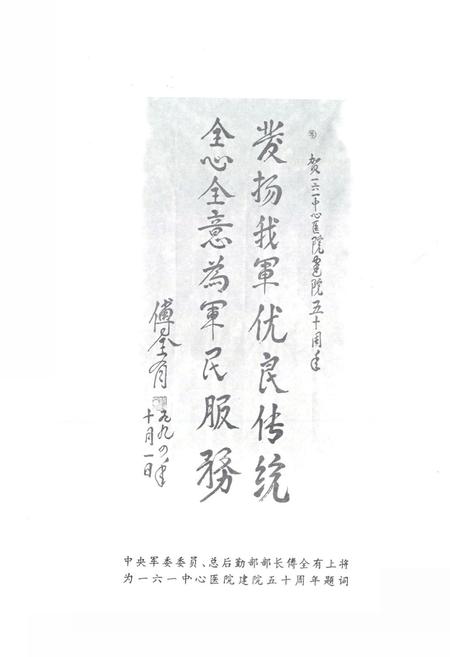 贺一六一中心医院建院五十周年
发扬我軍优良传统
全心全意为軍民服務
傅全有
一九九四年
十月一日
中央军委委员、总后勤部部长傅全有上将
为一六一中心医院建院五十周年题词